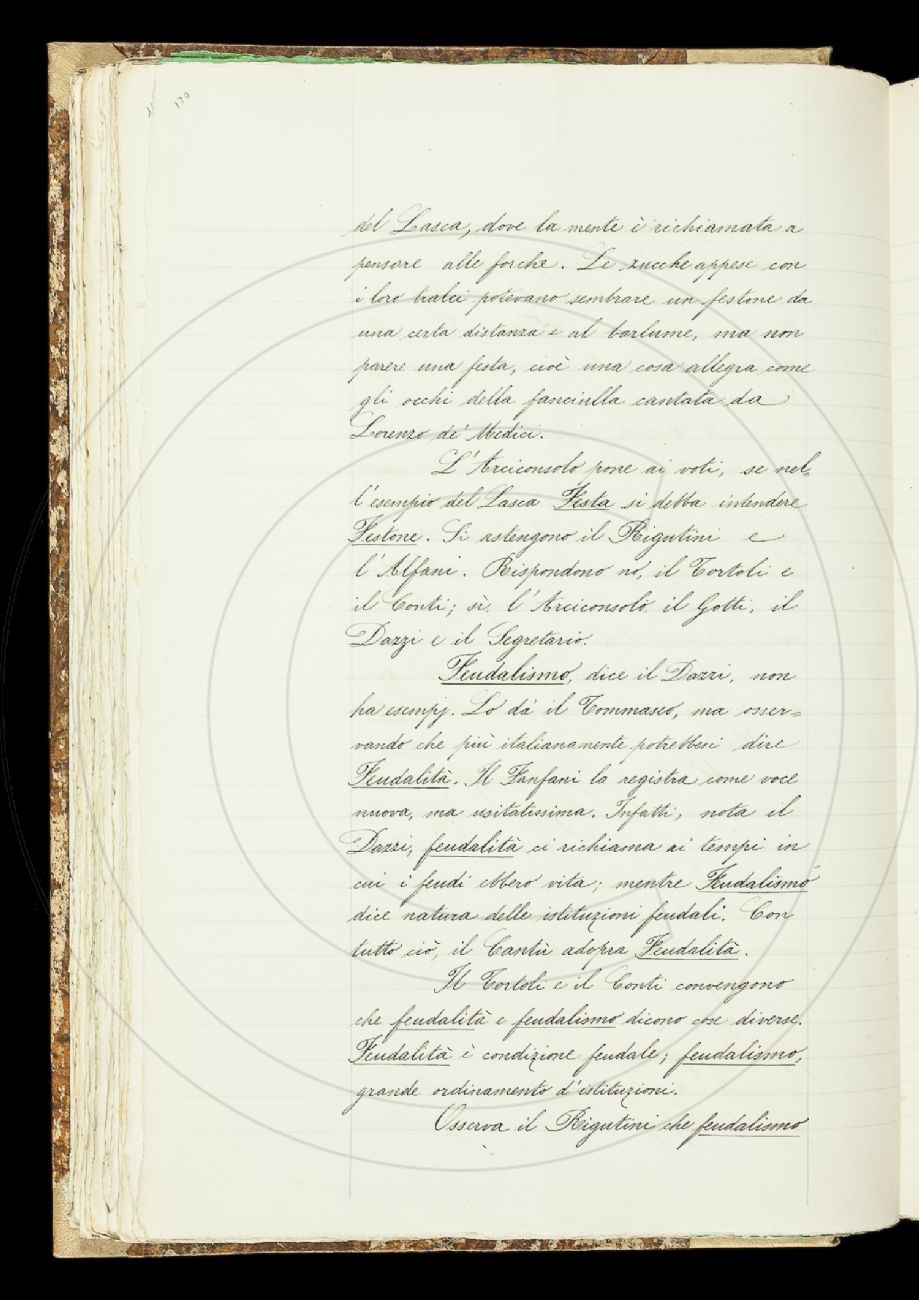 170
del Lasca, dove la mente è richiamata a
pensare alle forche. Le zucche appese con
i loro tralci potevano sembrare un festone da
una certa distanza e al barlume, ma non
parere una festa, cioè una cosa allegra come
gli occhi della fanciulla cantata da
Lorenzo de' Medici.
L'Arciconsolo pone ai voti, se nel=
l'esempio del Lasca Festa si debba intendere
Festone. Si astengono il Rigutini e
l'Alfani. Rispondono no, il Tortoli e
il Conti; sì, l'Arciconsolo, il Gotti, il
Dazzi e il Segretario.
Feudalismo, dice il Dazzi, non
ha esempj. Lo dà il Tommaseo, ma osser=
vando che più italianamente potrebbesi dire
Feudalità. Il Fanfani la registra come voce
nuova, ma usitatissima. Infatti, nota il
Dazzi, feudalità ci richiama ai tempi in
cui i feudi ebbero vita; mentre Feudalismo
dice natura delle istituzioni feudali. Con
tutto ciò, il Cantù adopra Feudalità.
Il Tortoli e il Conti convengono
che feudalità e feudalismo dicono cose diverse.
Feudalità è condizione feudale; feudalismo,
grande ordinamento d'istituzioni.
Osserva il Rigutini che feudalismo